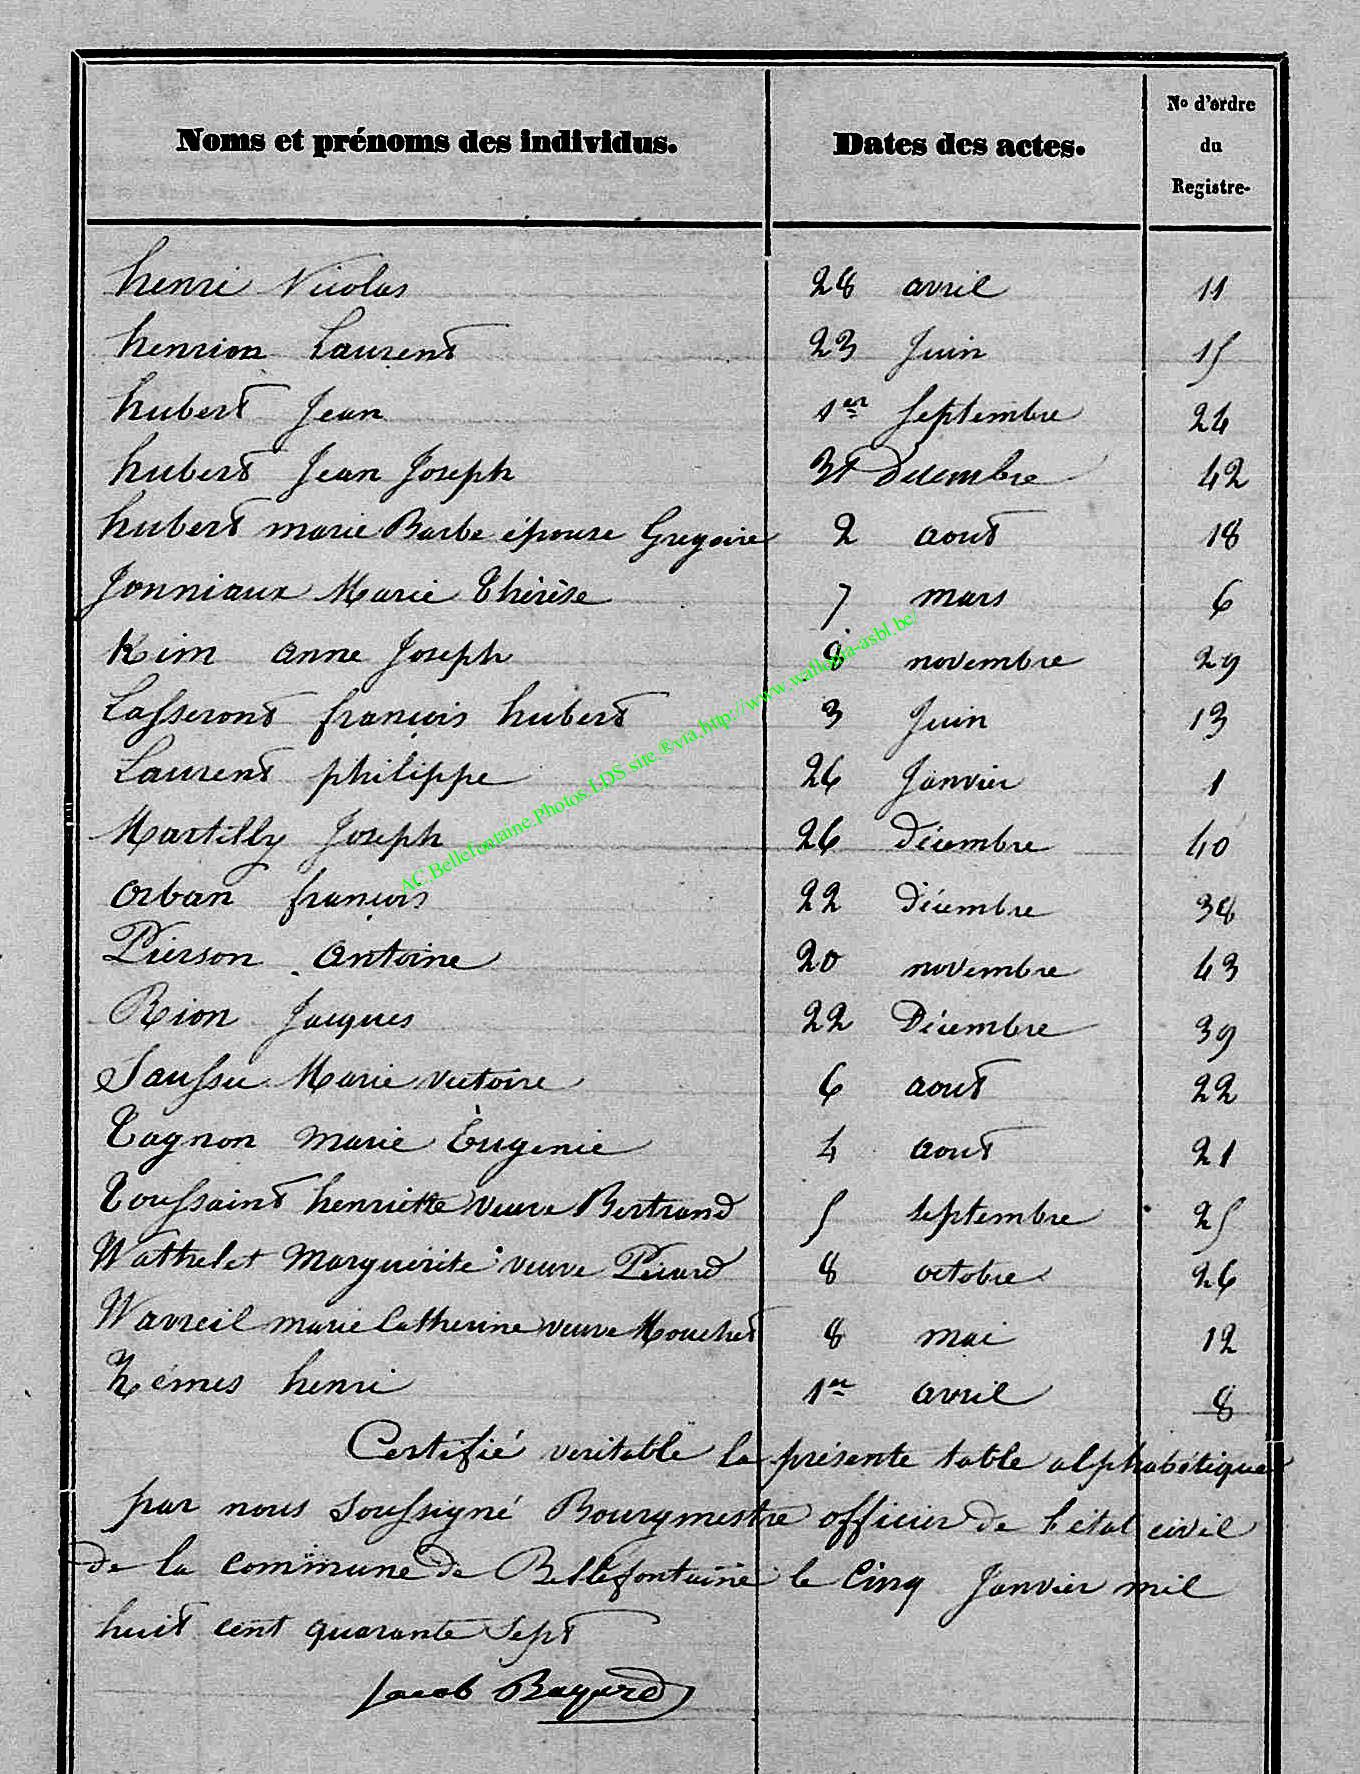 Noms et prénoms des individus. Dates des actes. No d'ordre du Registre.
henri Nicolas 28 avril 11
henrion Laurent 23 Juin 15
hubert Jean 1er Septembre 24
hubert Jean Joseph 31 Décembre 42
hubert marie Barbe épouse Gregoire 2 aout 18
Jonniaux Marie Thérèse 7 mars 6
Kim anne Joseph 8 novembre 29
Lasseront françois hubert 3 Juin 13
Laurent philippe 26 Janvier 1
Martilly Joseph 26 décembre 40
orban françois 22 décembre 38
Pierson Antoine 20 novembre 43
Rion Jacques 22 Décembre 39
Saussu Marie victoire 6 aout 22
Tagnon Marie Èugenie 4 aout 21
Toussaint henriette veuve Bertrand 5 septembre 25
Wathelet Marguerite veuve Pierard 8 octobre 26
Wavreil marie Catherine veuve Mouchet 8 mai 12
Zémes henri 1er avril 8
Certifié veritable la présente table alphabétique
par nous soussigné Bourgmestre officier de l'état civil
de la commune de Bellefontaine le Cinq Janvier mil
huit cent quarante sept
Jacob Bayard
AC.Bellefontaine.Photos LDS site.®via.http://www.wallonia-asbl.be/